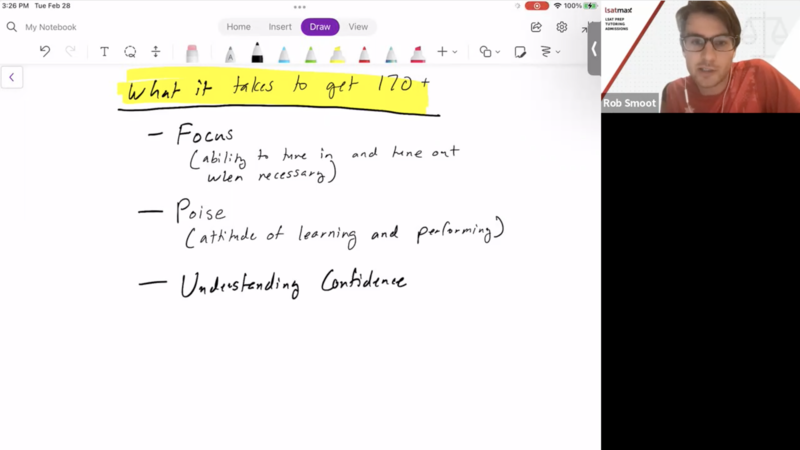 3:26 PM Tue Feb 28
100%
My Notebook
Home Insert Draw View
What it takes to get 170+
- Focus
(ability to tune in and tune out
when necessary)
- Poise
(attitude of learning and performing)
- Understanding Confidence
lsatmax
LSAT PREP
TUTORING
ADMISSIONS
Rob Smoot